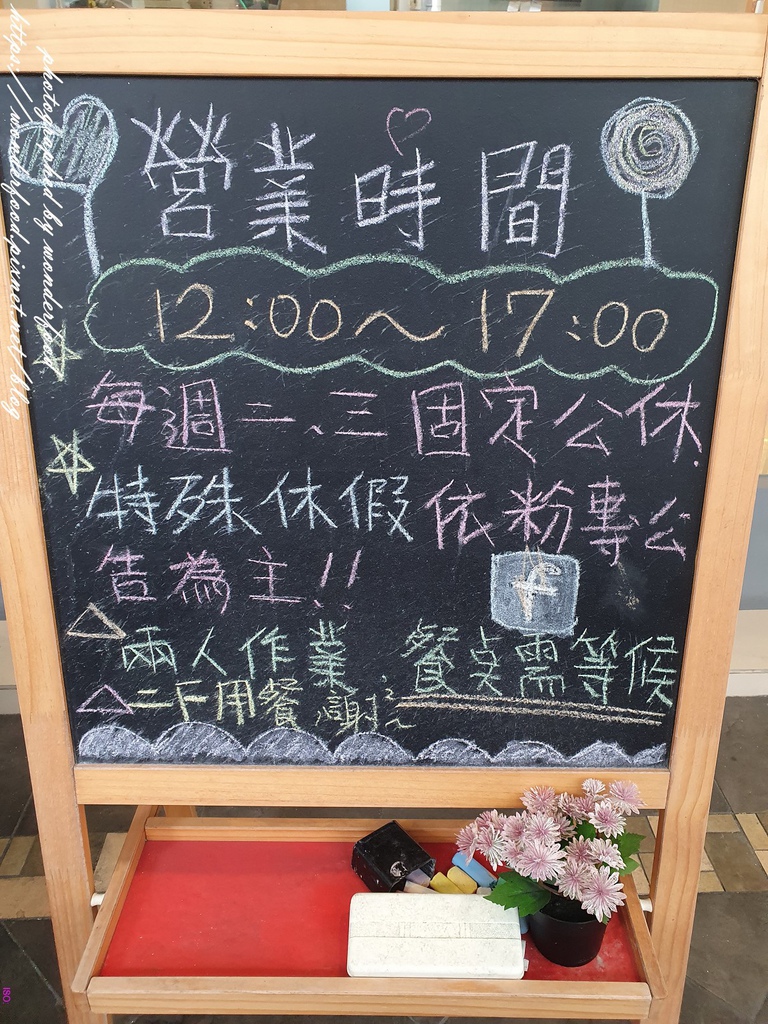 營業時間
12:00～17:00
每週二、三固定公休.
特殊休假依粉專公
告為主!!
f
△兩人作業，餐桌需等候
△二下用餐 謝謝~
photographed by wonderfood
https://wonderfood.pixnet.net/blog
ISO